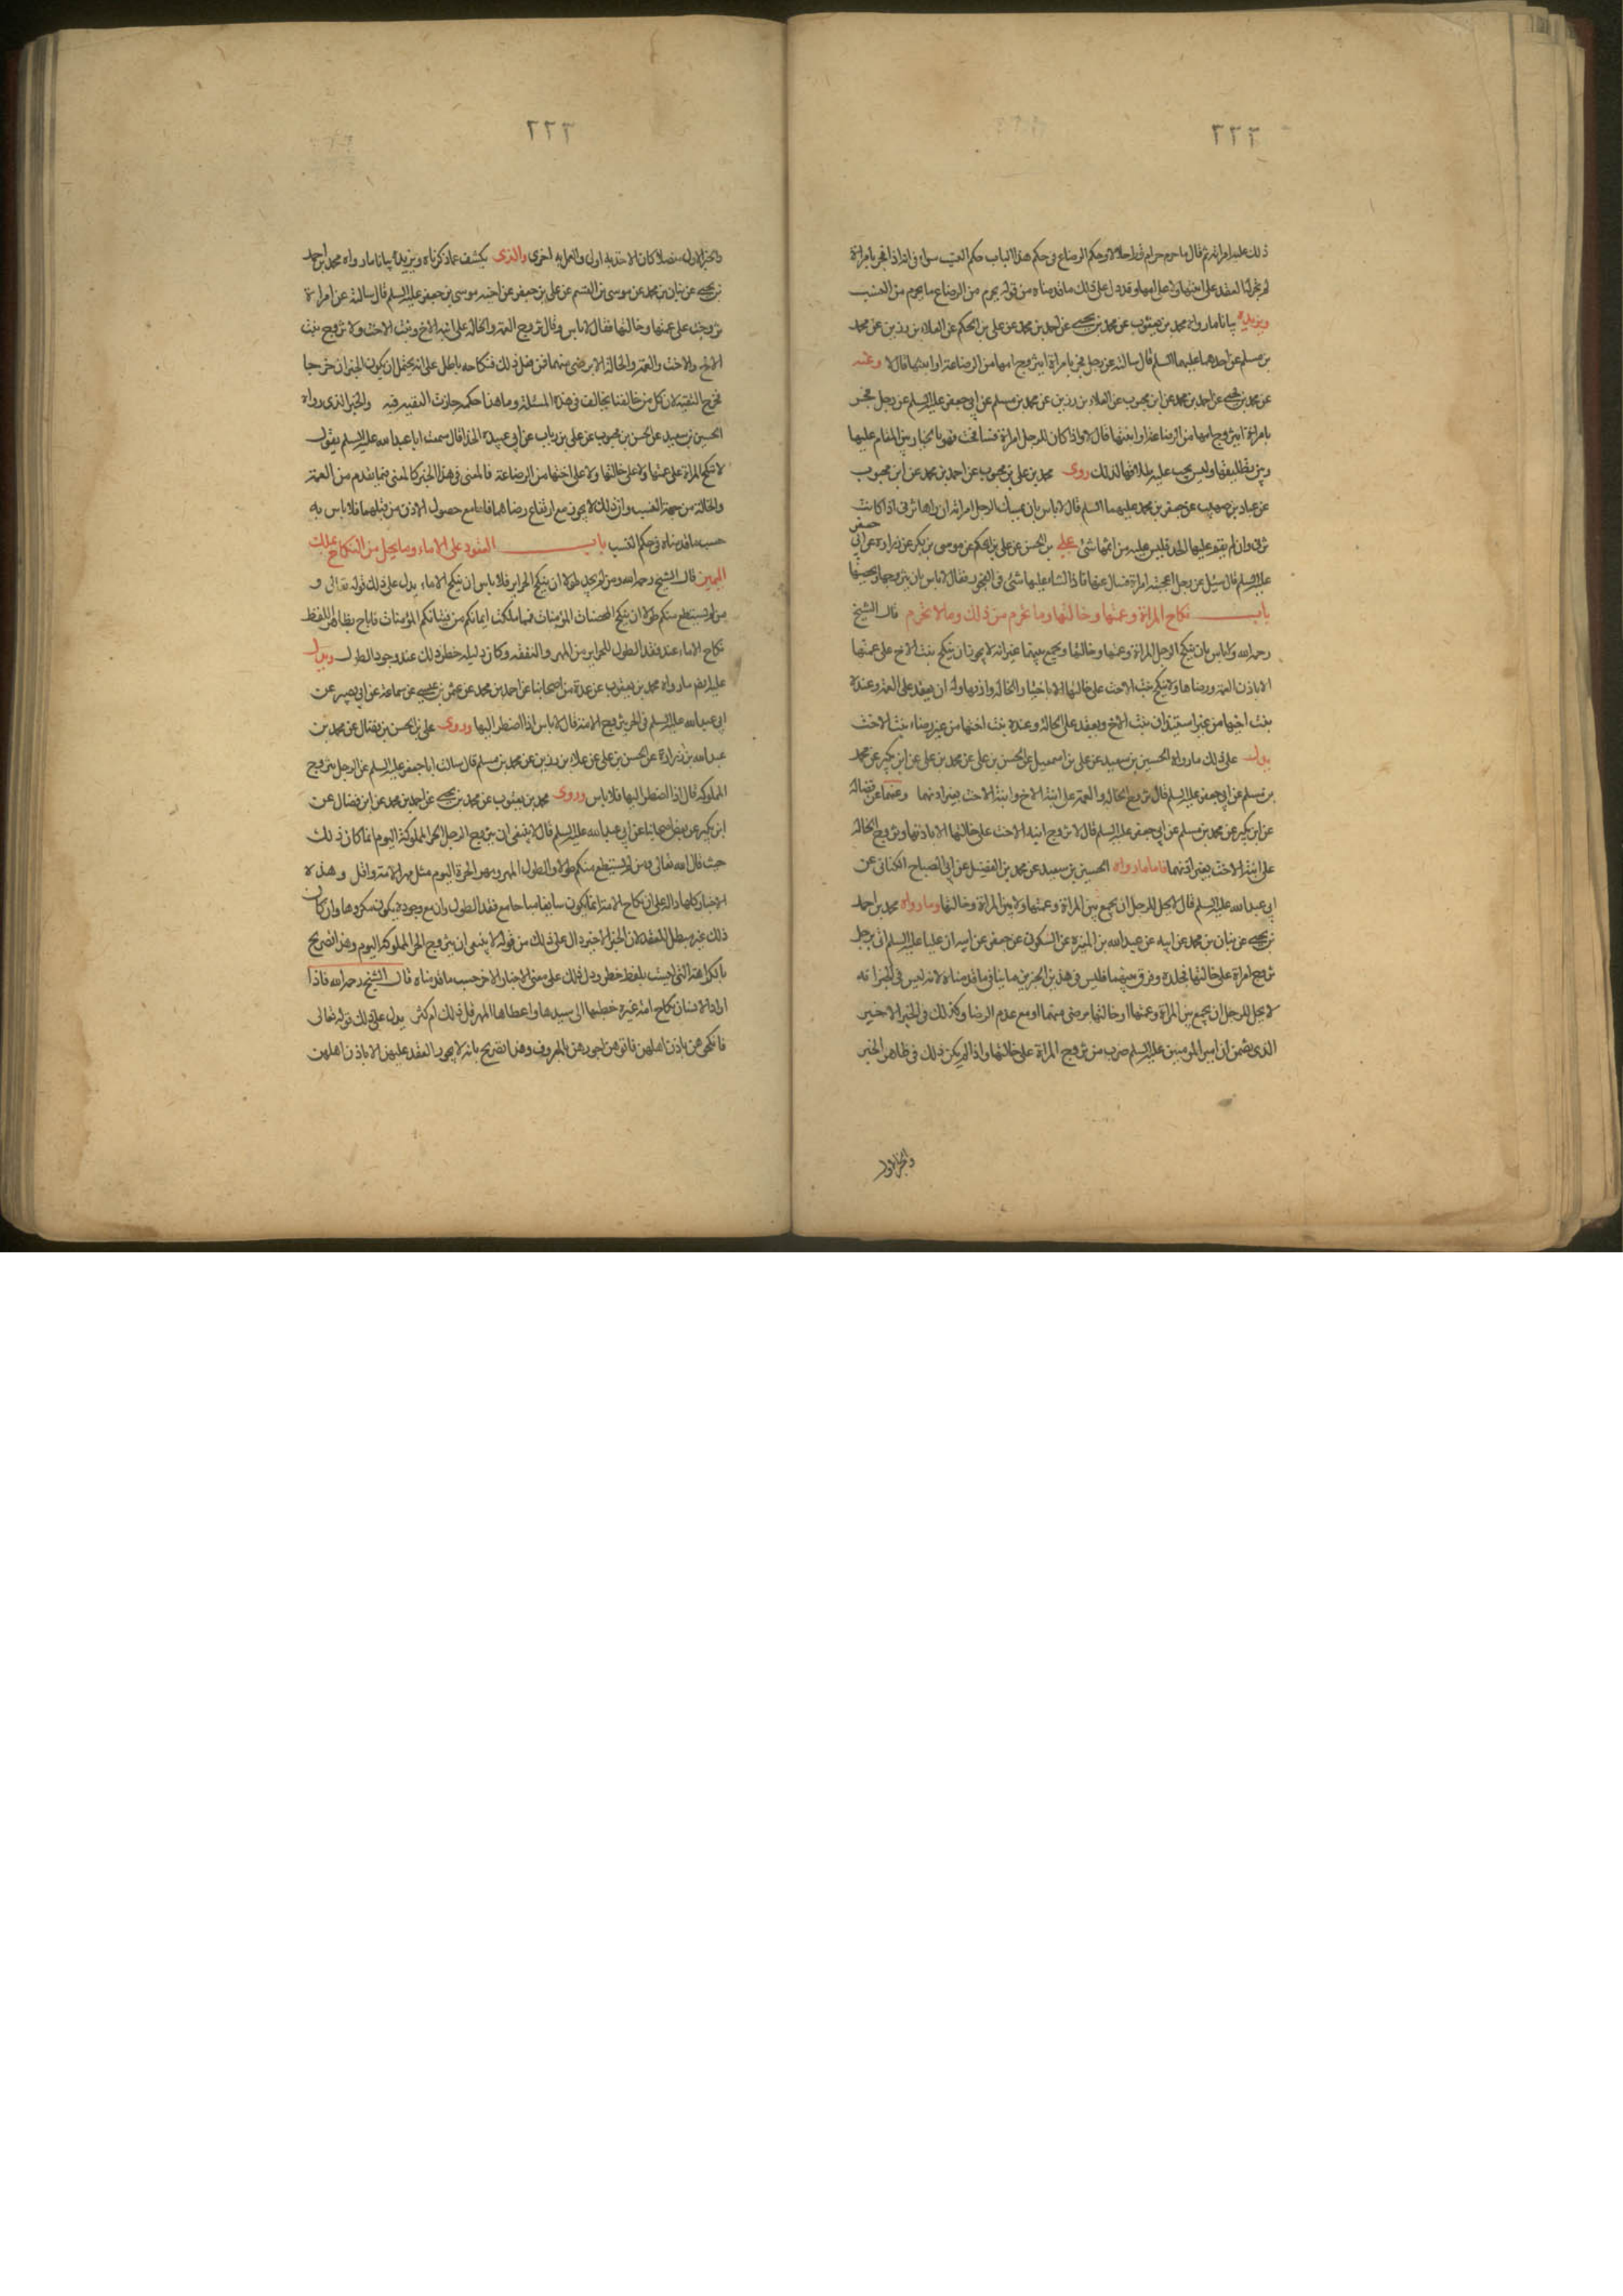 ٢٢٢
ذلك عليه امراته ثم قال ما حرم حرام قط حلالا وحكم الرضاع فى حكم هذا الباب حكم النسب سواء فى انه اذا فجر بامراة
لم يجز له العقد على ابنتها ولا على امها وقد دل على ذلك ما قدمناه من قوله يحرم من الرضاع ما يحرم من النسب
ويزيده بيانا ما رواه محمد بن يعقوب عن محمد بن يحيى عن احمد بن محمد عن على بن الحكم عن العلاء بن رزين عن محمد
بن مسلم عن احدهما عليهما السلم قال سالته عن رجل فجر بامراة ايتزوج امها من الرضاعة او ابنتها قال لا وعنه
عن محمد بن يحيى عن احمد بن محمد عن ابن محبوب عن العلاء بن رزين عن محمد بن مسلم عن ابى جعفر عليه السلم عن رجل فجر
بامراة ايتزوج امها من الرضاعة او ابنتها قال لا واذا كان للرجل امراة ففجرت فهو بالخيار بين المقام عليها
وبين تطليقها وليس يجب عليه طلاقها لذلك روى محمد بن على بن محبوب عن احمد بن محمد عن ابن محبوب
عن عباد بن صهيب عن جعفر بن محمد عليهما السلم قال لا باس بان يمسك الرجل امراته ان راها تزنى اذا كانت
تزنى وان لم يقم عليها الحد فليس عليه من اثمها شئ على بن الحسن عن على بن الحكم عن موسى بن بكر عن زرارة عن ابى جعفر
عليه السلم قال سئل عن رجل اعجبته امراة فسال عنها فاذا الثناء عليها شئ فى الفجور فقال لا باس بان يتزوجها ويحصنها
باب نكاح المراة وعمتها وخالتها وما يحرم من ذلك وما لا يحرم قال الشيخ
رحمه الله ولا باس بان ينكح الرجل المراة وعمتها وخالتها ويجمع بينهما غير انه لا يجوز ان ينكح بنت الاخ على عمتها
الا باذن العمة ورضاها ولا ينكح بنت الاخت على خالتها الا باختيار الخالة واذنها وله ان يعقد على العمة وعنده
بنت اخيها من غير استيذان بنت الاخ ويعقد على الخالة وعنده بنت اختها من غير رضاء بنت الاخت
يدل على ذلك ما رواه الحسين بن سعيد عن على بن اسمعيل عن الحسن بن على عن محمد بن على عن ابن بكير عن محمد
بن مسلم عن ابى جعفر عليه السلم قال تزوج الخالة والعمة على ابنة الاخ وابنة الاخت بغير اذنهما وعنهما عن فضالة
عن ابن بكير عن محمد بن مسلم عن ابى جعفر عليه السلم قال لا تزوج ابنة الاخت على خالتها الا باذنها وتزوج الخالة
على ابنة الاخت بغير اذنهما فاما ما رواه الحسين بن سعيد عن محمد بن الفضيل عن ابى الصباح الكنانى عن
ابى عبد الله عليه السلم قال لا يحل للرجل ان يجمع بين المراة وعمتها ولا بين المراة وخالتها وما رواه محمد بن احمد
بن يحيى عن بنان بن محمد عن ابيه عن عبد الله بن المغيرة عن السكونى عن جعفر عن ابيه ان عليا عليه السلم اتى برجل
تزوج امراة على خالتها فجلده وفرق بينهما فليس فى هذين الخبرين ما ينافى ما قدمناه لانه ليس فى الخبر انه
لا يحل للرجل ان يجمع بين المراة وعمتها او خالتها برضى منهما او مع عدم الرضا وكذلك فى الخبر الاخير
الذى يضمن ان امير المومنين عليه السلم ضرب من تزوج المراة على خالتها واذا لم يكن ذلك فى ظاهر الخبر
والخبر الاول
٢٢٣
والخبر الاول مفصلا كان الاخذ به اولى والعمل به احرى والذى يكشف عما ذكرناه ويزيده بيانا ما رواه محمد بن احمد
بن يحيى عن بنان بن محمد عن موسى بن القسم عن على بن جعفر عن اخيه موسى بن جعفر عليه السلم قال سالته عن امراة
تزوجت على عمتها وخالتها فقال لا باس وقال تزوج العمة والخالة على ابنة الاخ وبنت الاخت ولا تزوج بنت
الاخ والاخت والعمة والخالة الا برضى منهما فمن فعل ذلك فنكاحه باطل على انه يحتمل ان يكون الخبران خرجا
مخرج التقية لان كل من خالفنا يخالف فى هذه المسئلة وما هذا حكمه جازت التقية فيه والخبر الذى رواه
الحسين بن سعيد عن الحسن بن محبوب عن على بن رياب عن ابى عبيدة الحذا قال سمعت ابا عبد الله عليه السلم يقول
لا تنكح المراة على عمتها ولا على خالتها ولا على اختها من الرضاعة فالمعنى فى هذا الخبر كالمعنى فيما تقدم من العمة
والخالة من جهة النسب وان ذلك لا يجوز مع ارتفاع رضاهما فاما مع حصول الاذن من قبلهما فلا باس به
حسب ما قدمناه فى حكم النسب باب العقود على الاماء وما يحل من النكاح بملك
اليمين قال الشيخ رحمه الله ومن لم يجد طولا ان ينكح الحراير فلا باس ان ينكح الاماء يدل على ذلك قوله تعالى و
من لم يستطع منكم طولا ان ينكح المحصنات المؤمنات فمما ملكت ايمانكم من فتياتكم المؤمنات فاباح بظاهر اللفظ
نكاح الاماء عند فقد الطول للحراير من المهر والنفقه وكان دليله حظر ذلك عند وجود الطول ويدل
عليه ايضا ما رواه محمد بن يعقوب عن عدة من اصحابنا عن احمد بن محمد عن عثمن بن عيسى عن سماعة عن ابى بصير عن
ابى عبد الله عليه السلم فى الحر يتزوج الامة قال لا باس اذا اضطر اليها وروى على بن الحسن بن فضال عن محمد بن
عبد الله بن زرارة عن الحسن بن على عن علاء بن رزين عن محمد بن مسلم قال سالت ابا جعفر عليه السلم عن الرجل يتزوج
المملوكة قال اذا اضطر اليها فلا باس وروى محمد بن يعقوب عن محمد بن يحيى عن احمد بن محمد عن ابن فضال عن
ابن بكير عن بعض اصحابنا عن ابى عبد الله عليه السلم قال لا ينبغى ان يتزوج الرجل الحر المملوكة اليوم انما كان ذلك
حيث قال الله تعالى ومن لم يستطع منكم طولا والطول المهر ومهر الحرة اليوم مثل مهر الامة واقل وهذه
الاخبار كلها دالة على ان نكاح الامة انما يكون سايغا مباحا مع فقد الطول وان مع وجوده يكون مكروها وان كان
ذلك غير مبطل للعقد لان الخبر الاخير دال على ذلك من قوله لا ينبغى ان يتزوج الحر المملوكة اليوم وهذا تصريح
بالكراهة التى ليست بلفظ حظر ودل ذلك على معنى الاخبار الاخر حسب ما قدمناه قال الشيخ رحمه الله فاذا
اراد الانسان نكاح امة غيره خطبها الى سيدها واعطاها المهر قل ذلك ام كثر يدل على ذلك قوله تعالى
فانكحوهن باذن اهلهن واتوهن اجورهن بالمعروف وهذا تصريح بانه لا يجوز العقد عليهن الا باذن اهلهن